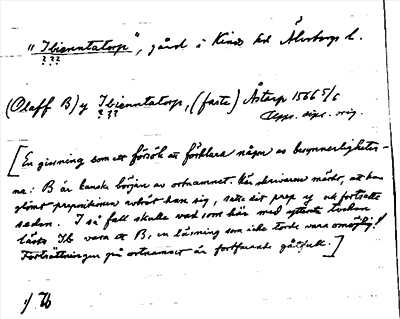 "Ibienntatorp", gård i Kinds hd Älvsborgs l.
???
(Olaff B) y Ibienntatorp, (farte) Åstarp 1566 5/6
???
Upps. dipl. orig.
[En gissning som ett försök att förklara några av besynnerligheter-
na: B är kanske början av ortnamnet. När skrivaren märkt, att han
glömt prepositionen avbröt han sig, satte dit prep y och fortsatte
sedan. I så fall skulle vad som här med tvekan
lästs Ib vara ett B, en läsning som icke torde vara omöjlig!
Fortsättningen på ortnamnet är fortfarande gåtfull.]
1/ Ib